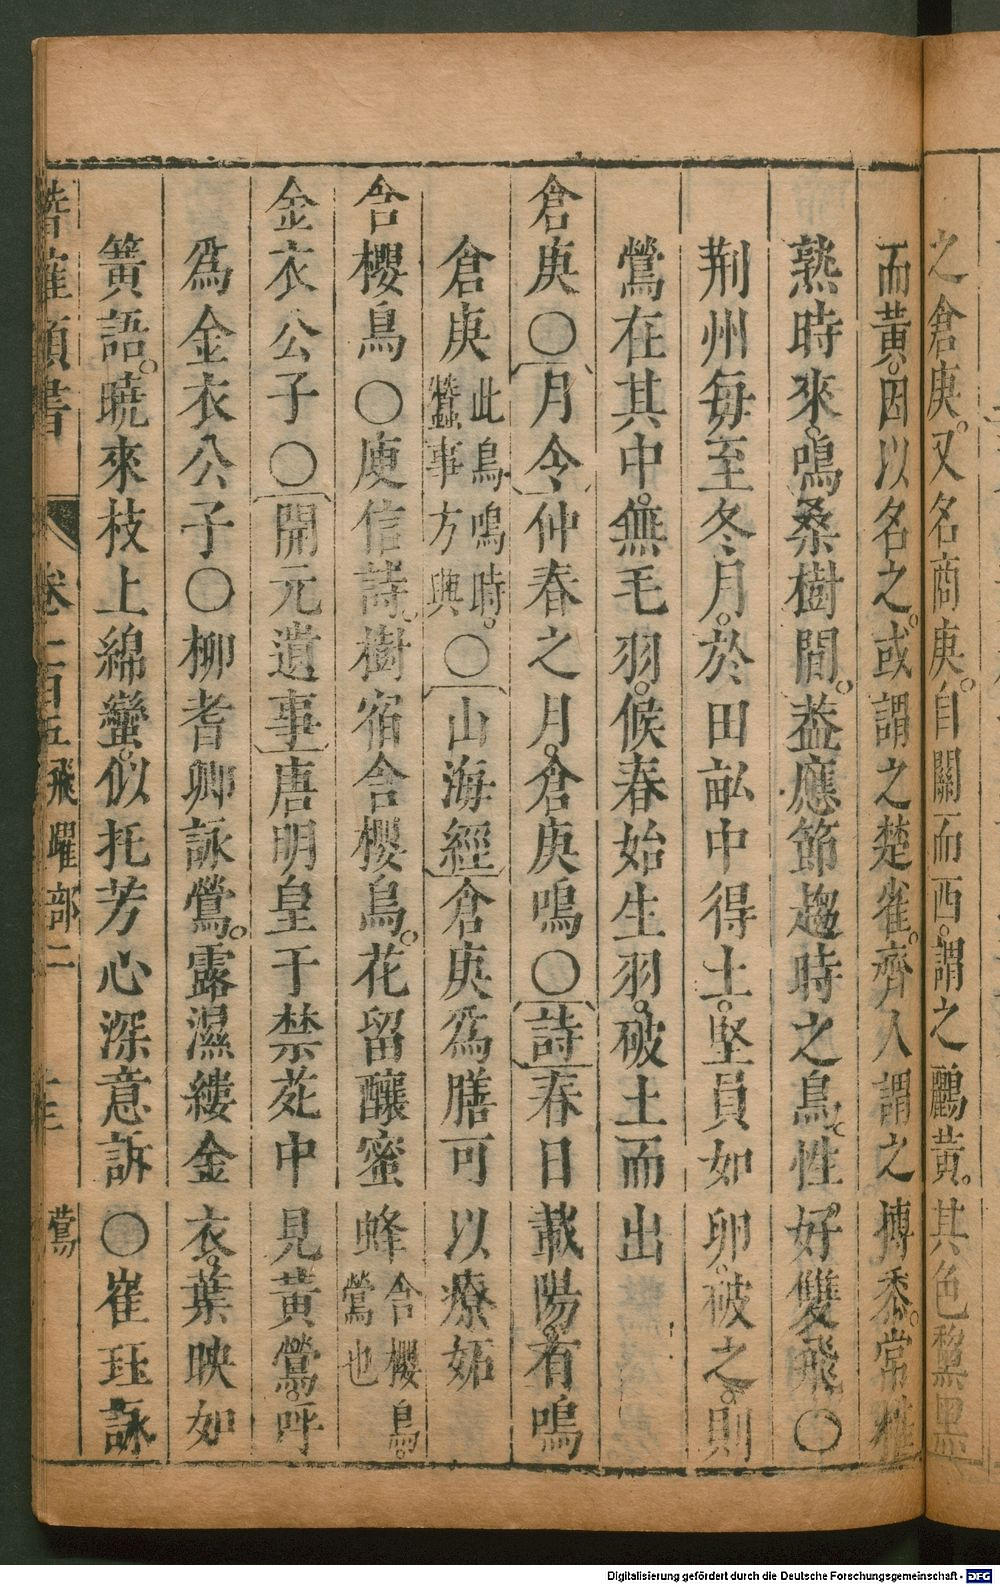 之倉庚。又名商庚。自關而西。謂之鸝黃。其色黧黑
而黃。因以名之。或謂之楚雀。齊人謂之搏黍。常椹
熟時來。鳴桑樹間。葢應節趨時之鳥。性好雙飛〇
荆州每至冬月。於田畝中得土。堅員如卵。破之。則
鶯在其中。無毛羽。候春始生羽。破土而出
倉庚〇月令仲春之月。倉庚鳴〇詩春日載陽。有鳴
倉庚此鳥鳴時。蠶事方興〇山海經倉庚為膳可以療妬
含櫻鳥〇庾信詩。樹宿含櫻鳥。花留釀蜜蜂含櫻鳥。鶯也
金衣公子〇開元遺事唐明皇于禁苑中見黃鶯。呼
爲金衣公子〇柳耆卿詠鶯。露濕縷金衣。葉映如
簧語。曉來枝上綿蠻。似托芳心深意訴〇崔珏詠
潛確類書 卷一百五 飛躍部二 十三 鶯
Digitalisierung gefördert durch die Deutsche Forschungsgemeinschaft - DFG